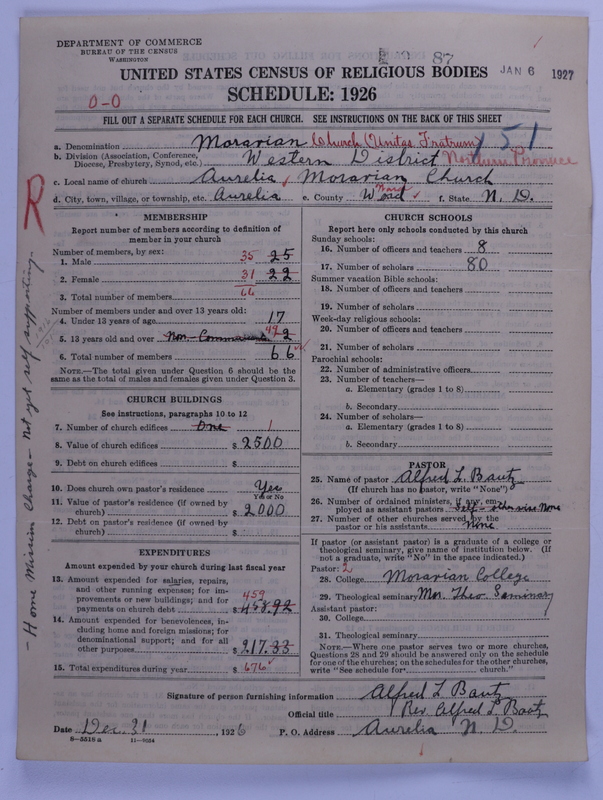 DEPARTMENT OF COMMERCE
BUREAU OF THE CENSUS
WASHINGTON
87
JAN 6 1927
UNITED STATES CENSUS OF RELIGIOUS BODIES
SCHEDULE: 1926
0-0
FILL OUT A SEPARATE SCHEDULE FOR EACH CHURCH. SEE INSTRUCTIONS ON THE BACK OF THIS SHEET
a. Denomination Moravian Church (Unitas Fratrum) 151
b. Division (Association, Conference, Diocese, Presbytery, Synod, etc.) Western District Northern Province
c. Local name of church Aurelia Moravian Church
d. City, town, village, or township, etc. Aurelia e. County Ward f. State N. D.
R
- Home Mission Charge - Not yet self supporting.
MEMBERSHIP
Report number of members according to definition of member in your church
Number of members, by sex:
1. Male 35 25
2. Female 31 22
3. Total number of members 66
Number of members under and over 13 years old:
4. Under 13 years of age 17
5. 13 years old and over 49
6. Total number of members 66
NOTE.—The total given under Question 6 should be the same as the total of males and females given under Question 3.
CHURCH BUILDINGS
See instructions, paragraphs 10 to 12
7. Number of church edifices One 1
8. Value of church edifices $ 2500
9. Debt on church edifices $
10. Does church own pastor's residence Yes
Yes or No
11. Value of pastor's residence (if owned by church) $ 2000
12. Debt on pastor's residence (if owned by church) $
EXPENDITURES
Amount expended by your church during last fiscal year
13. Amount expended for salaries, repairs, and other running expenses; for improvements or new buildings; and for payments on church debt 459 $ 458.92
14. Amount expended for benevolences, including home and foreign missions; for denominational support; and for all other purposes $ 217.33
15. Total expenditures during year $ 676
CHURCH SCHOOLS
Report here only schools conducted by this church
Sunday schools:
16. Number of officers and teachers 8
17. Number of scholars 80
Summer vacation Bible schools:
18. Number of officers and teachers
19. Number of scholars
Week-day religious schools:
20. Number of officers and teachers
21. Number of scholars
Parochial schools:
22. Number of administrative officers
23. Number of teachers—
a. Elementary (grades 1 to 8)
b. Secondary
24. Number of scholars—
a. Elementary (grades 1 to 8)
b. Secondary
PASTOR
25. Name of pastor Alfred L. Bautz
(If church has no pastor, write "None")
26. Number of ordained ministers, if any, employed as assistant pastors Self - otherwise None
27. Number of other churches served by the pastor or his assistants None
If pastor (or assistant pastor) is a graduate of a college or theological seminary, give name of institution below. (If not a graduate, write "No" in the space indicated.)
Pastor: 2
28. College Moravian College
29. Theological seminary Mor. Theo. Seminary
Assistant pastor:
30. College
31. Theological seminary
NOTE.—Where one pastor serves two or more churches, Questions 28 and 29 should be answered only on the schedule for one of the churches; on the schedules for the other churches, write "See schedule for church."
Signature of person furnishing information Alfred L Bautz
Official title Rev. Alfred L Bautz
Date Dec. 31, 1926 P. O. Address Aurelia N. D.
8-5518 a 11-9054